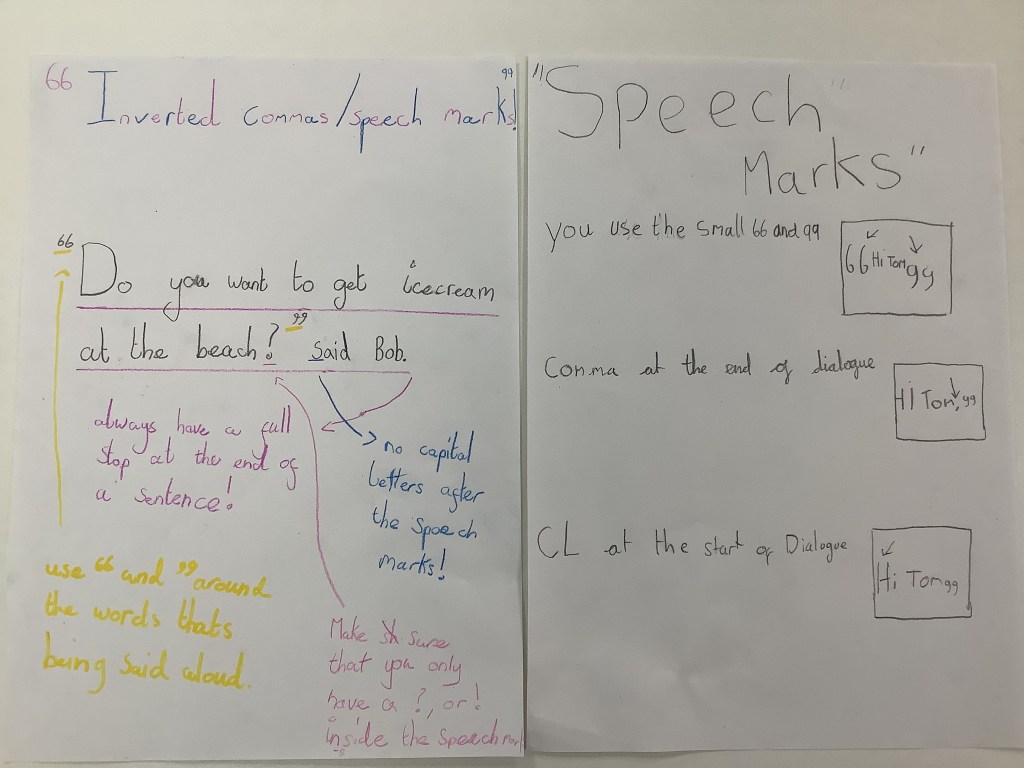 66 Inverted commas/speech marks! 99
66 Do you want to get icecream
at the beach? 99 said Bob.
always have a full
stop at the end of
a sentence!
no capital
letters after
the speech
marks!
use 66 and 99 around
the words thats
being said aloud.
Make sure
that you only
have a ?, or !
inside the speech mark
"Speech"
Marks"
you use the small 66 and 99
66 Hi Tom 99
Comma at the end of dialogue
Hi Tom, 99
CL at the start of Dialogue
Hi Tom 99